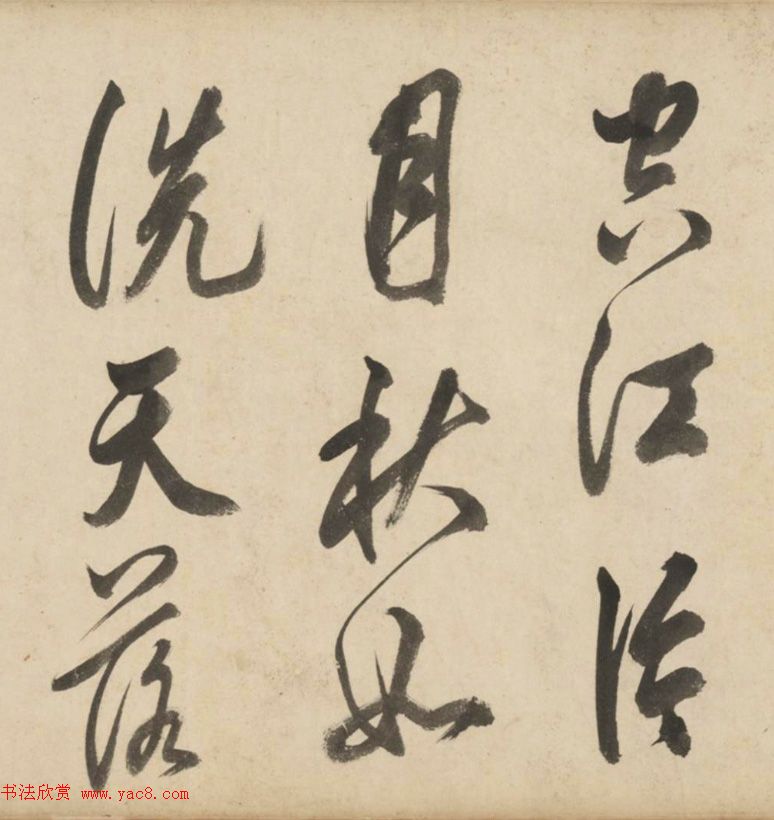 寒江
月秋如
洗天落
书法欣赏 www.yac8.com